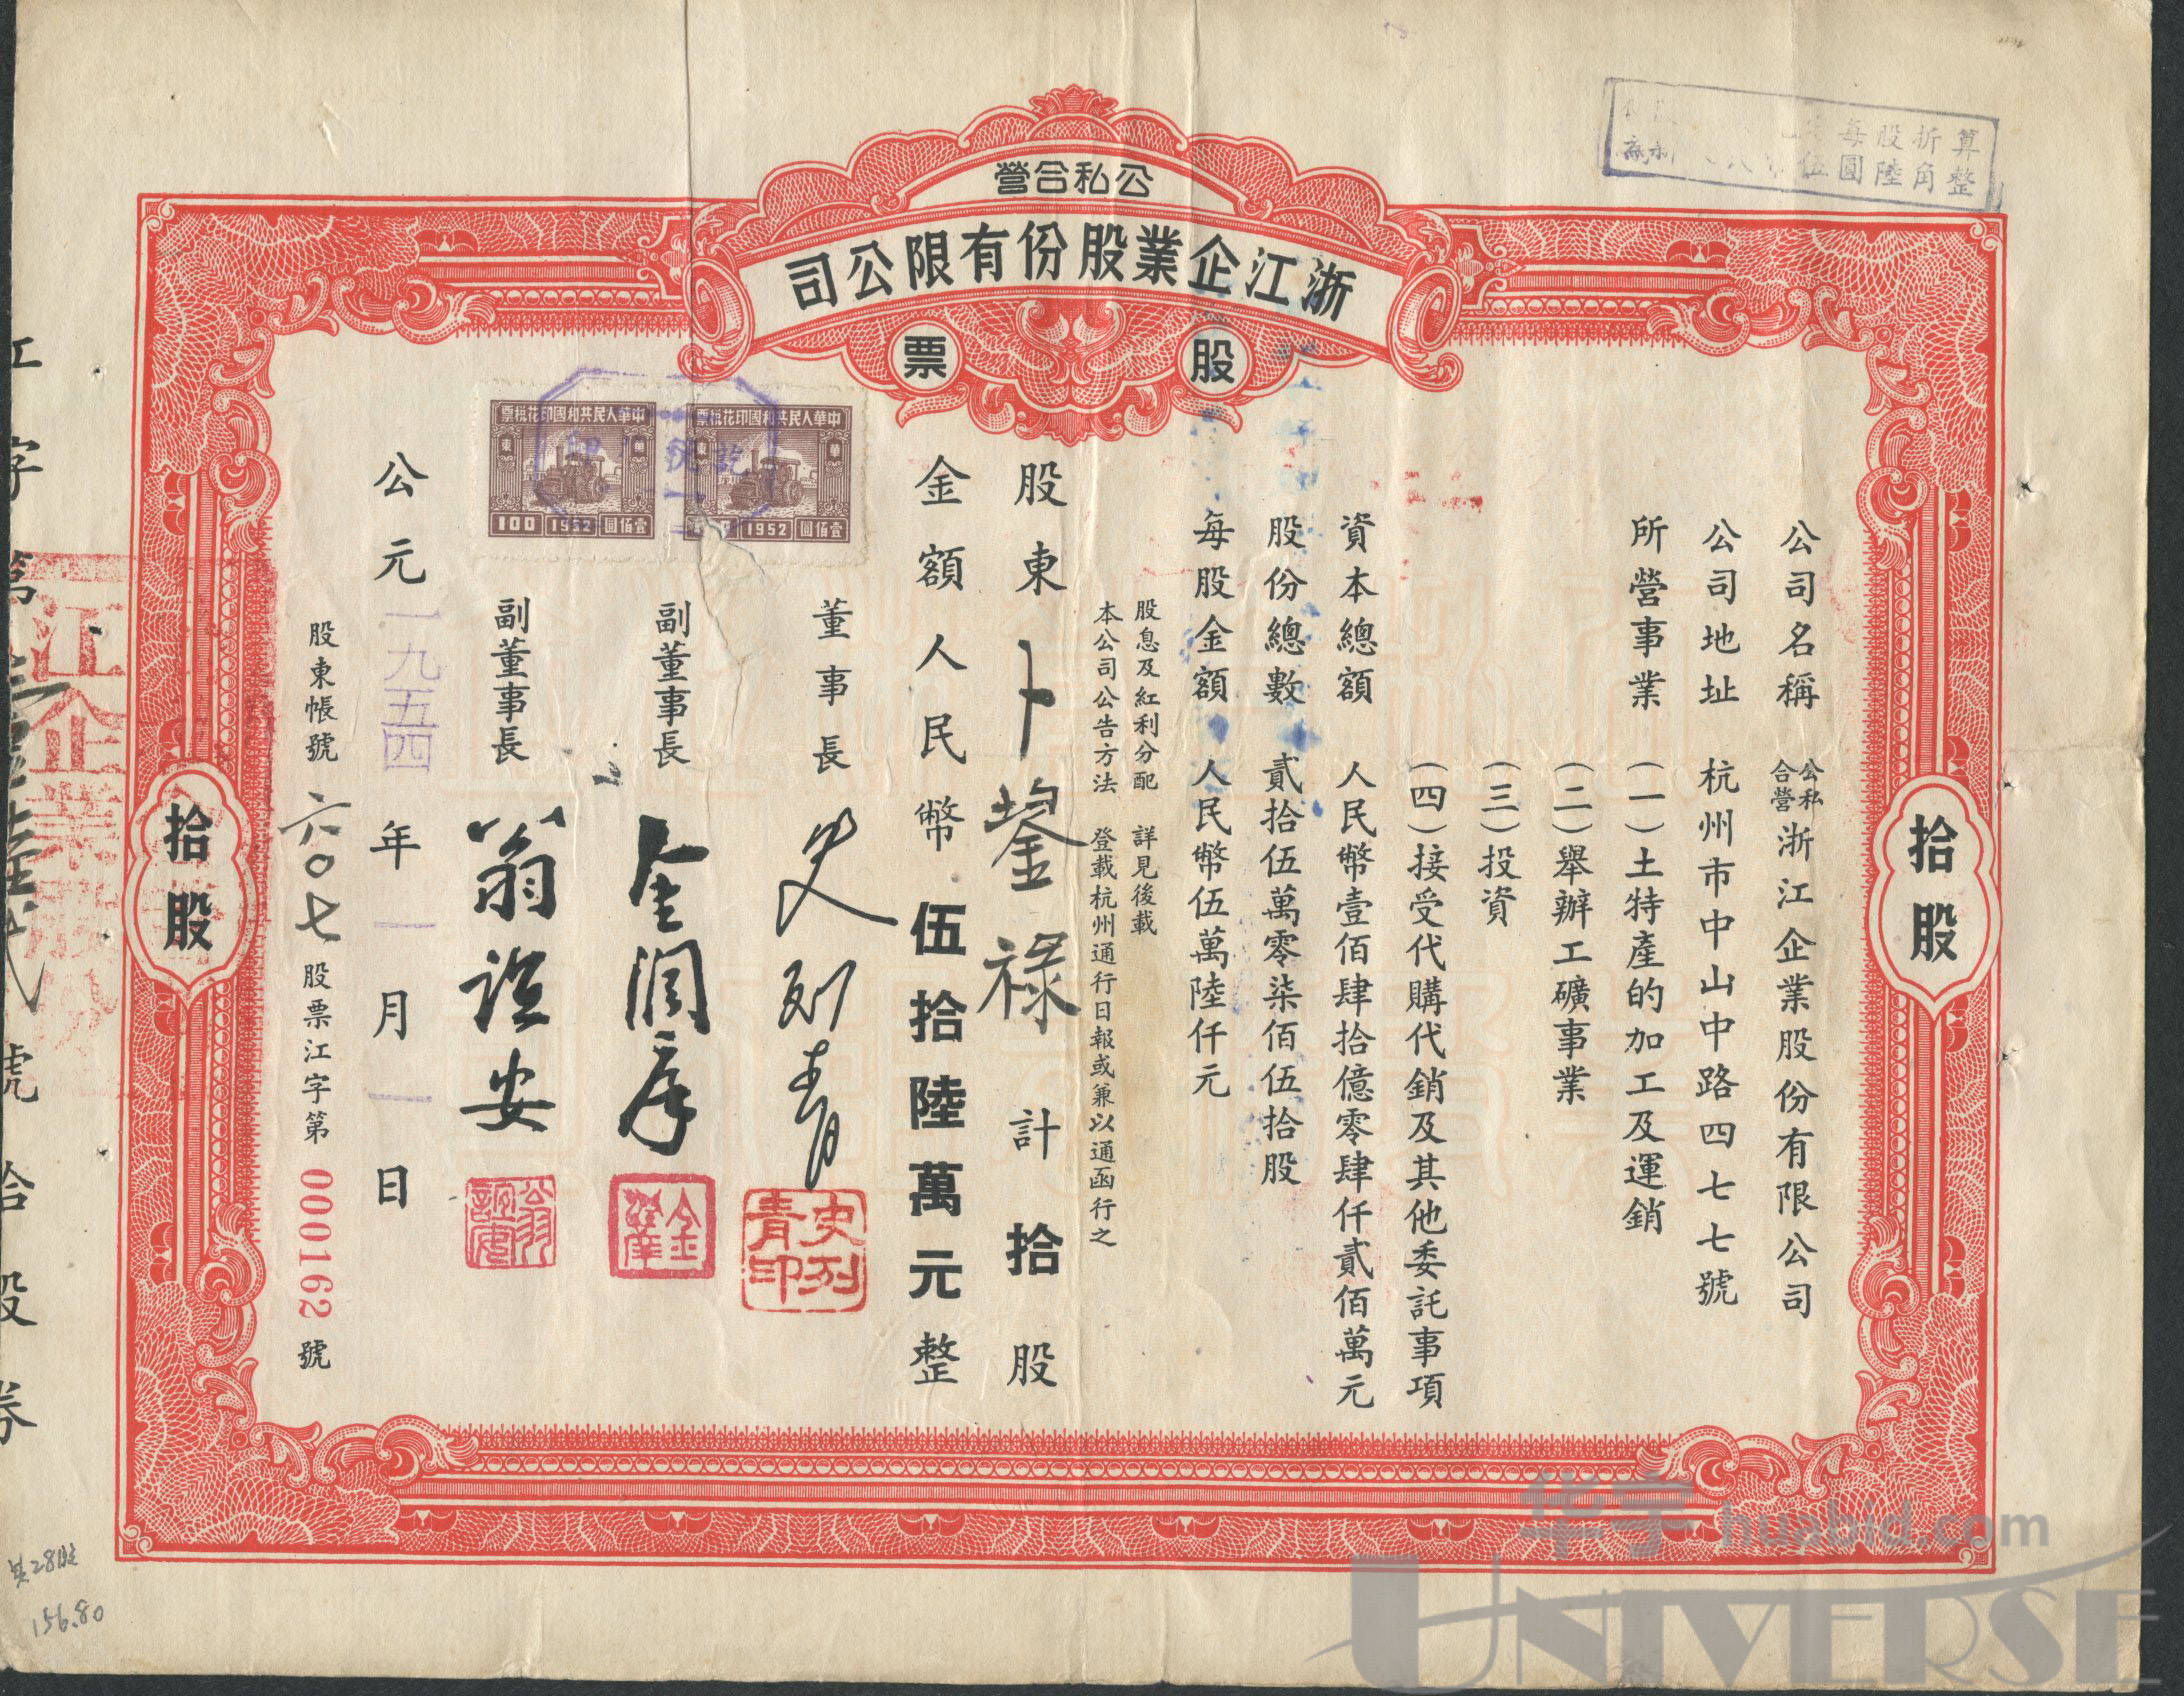 算折股每
整角陸圓伍
公私合營
浙江企業股份有限公司
股票
拾股
公司名稱 公私合營浙江企業股份有限公司
公司地址 杭州市中山中路四七七號
所營事業 (一)土特產的加工及運銷
(二)舉辦工礦事業
(三)投資
(四)接受代購代銷及其他委託事項
資本總額 人民幣壹佰肆拾億零肆仟貳佰萬元
股份總數 貳拾伍萬零柒佰伍拾股
每股金額 人民幣伍萬陸仟元
股息及紅利分配 詳見後載
本公司公告方法 登載杭州通行日報或兼以通函行之
股東 卜鋆祿 計拾股
金額人民幣伍拾陸萬元整
中華人民共和國印花稅票
華東
壹佰圓 1952
中華人民共和國印花稅票
華東
壹佰圓 1952 100
董事長 史列青
史列青印
副董事長 金潤庠
金潤庠
副董事長 翁誼安
翁誼安
公元一九五四年一月一日
股東帳號 六〇七 股票江字第 000162 號
拾股
江企業股份
江字第
號拾股券
共28股
156.80
华宇 huabid.com
UNIVERSE